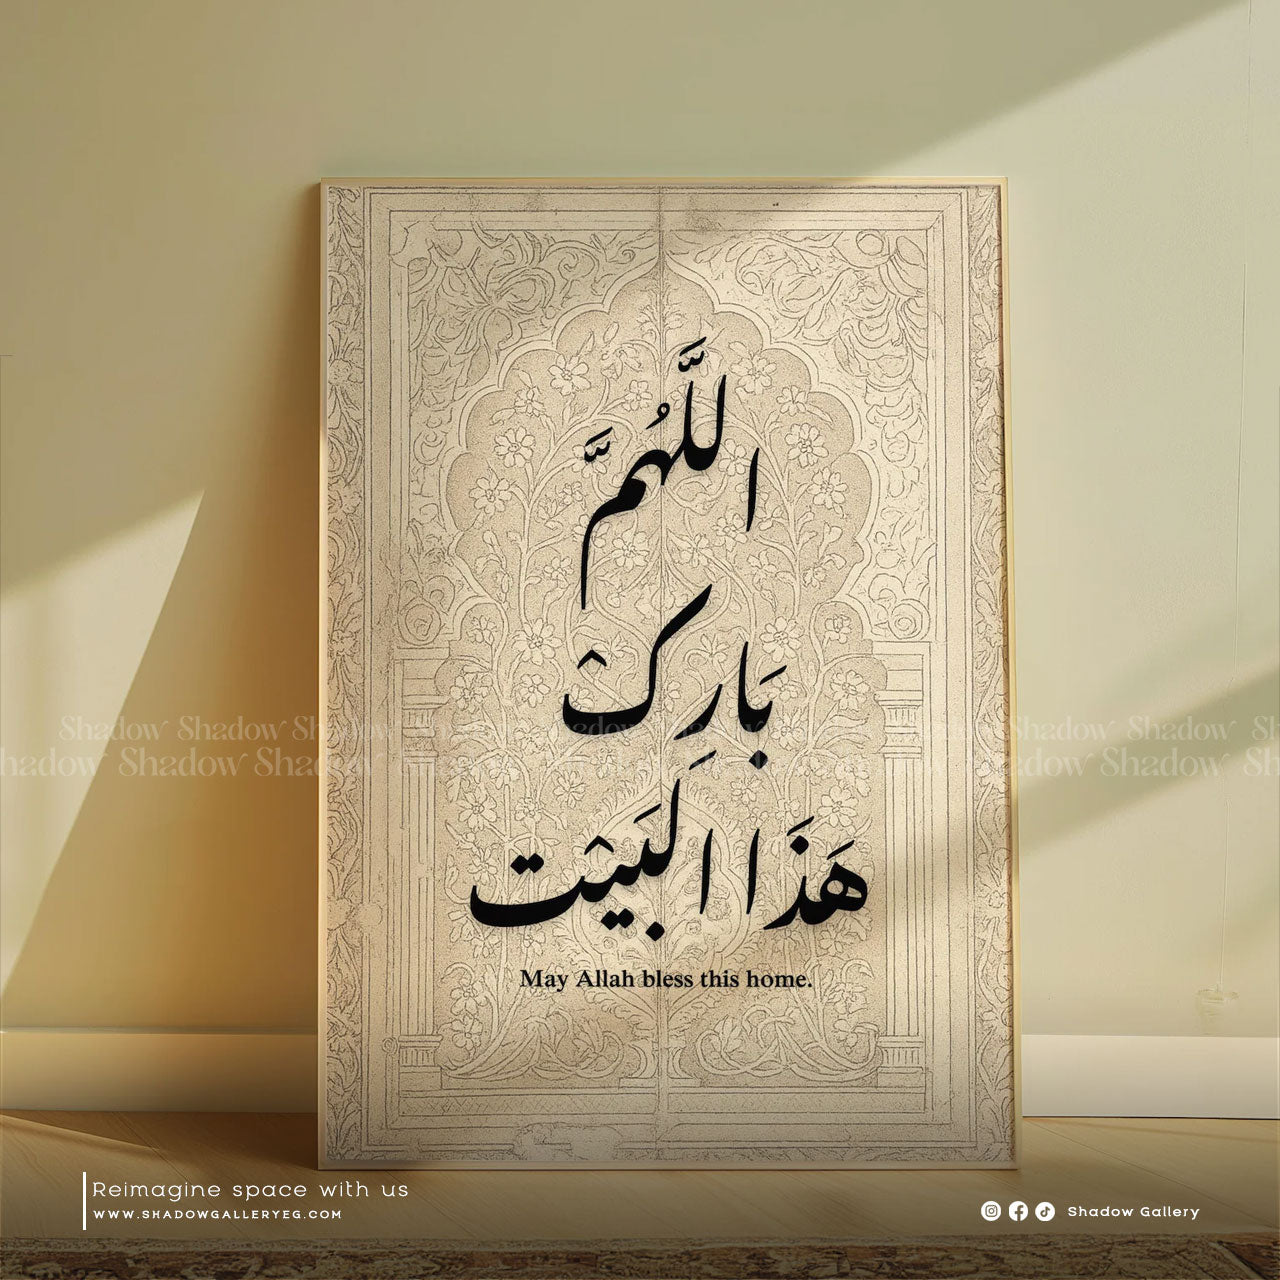 اللَّهُمَّ
بَارِكْ
هَذَا البَيْت
May Allah bless this home.
Shadow Shadow Shadow Shadow Shadow Shadow
Shadow Shadow Shadow Shadow Shadow
Reimagine space with us
WWW.SHADOWGALLERYEG.COM
Shadow Gallery